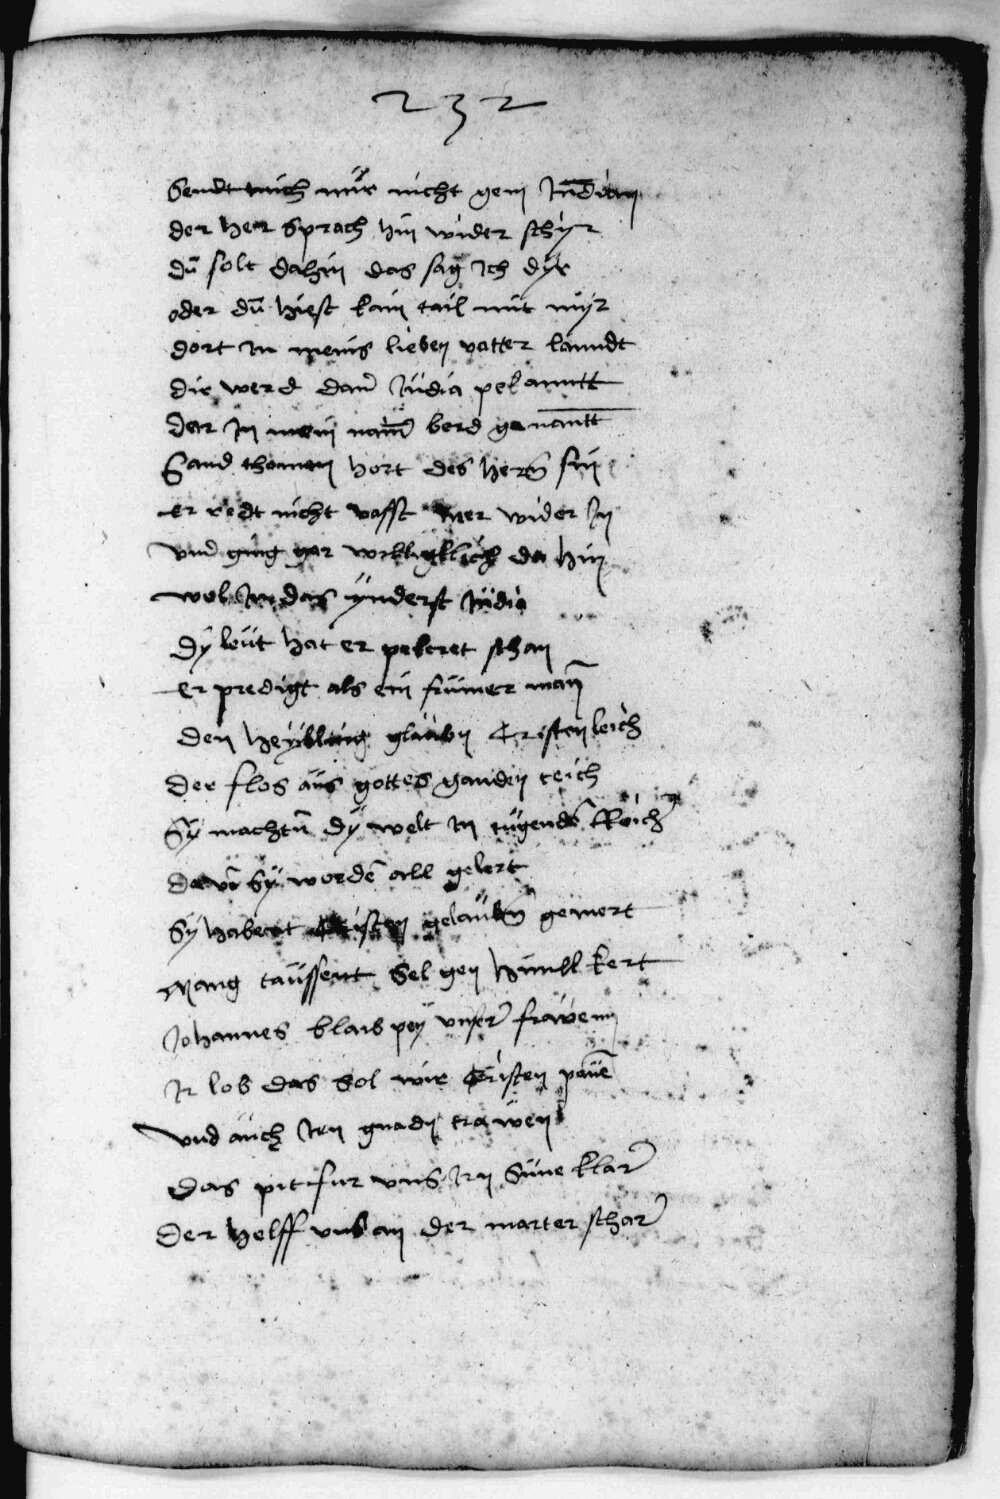 232
Sendt mich nür nicht gen Jndian
der her sprach hin wider schyr
dü solt dahin das sag ich dyr
oder dü hiest kain tail mit myr
dort in meins lieben vatter lanndt
dir werd dann Jndia pekanntt
dar Jn mein nam berd genantt
Sand thoman hort des hern sin
er redt nicht vasst mer wider Jn
vnd ging gar da hin
wol Jn das ynderst Jndia
dy leüt hat er pekeret schan
er predigt als ein frümer man
den glaübn Cristenleich
der flos aüs gottes gnaden teich
Sy machtn dy welt in tügendn Reich
davn sy worden all gelert
Sy habent Cristen gelaübn gemert
Mang taüssent sel gen himll kert
Johannes blaib pey vnser fraẅenn
Jr lob das sol wir Cristen paüen
vnd aüch Jrn gnadn traẅen
das pit fur vns Jrn süne klar
der helff vns an der marter schar